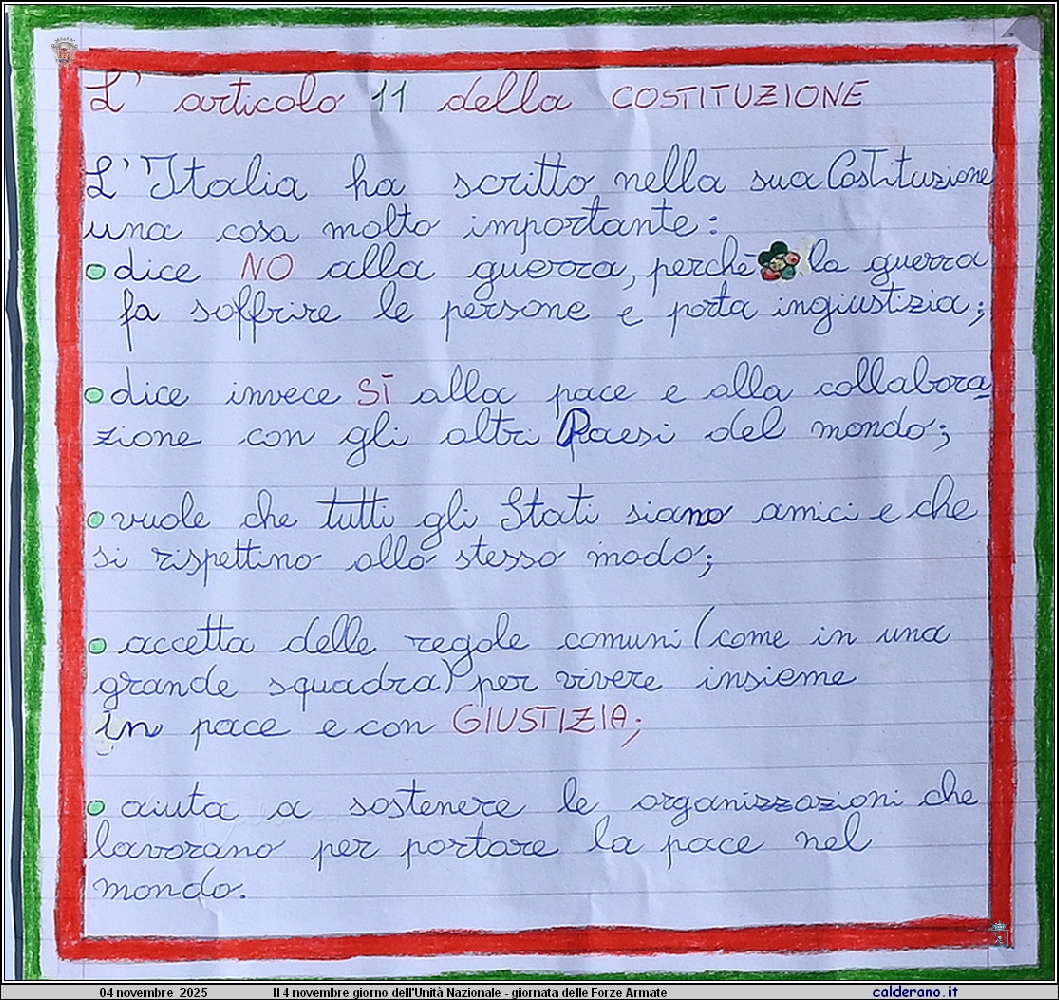 L' articolo 11 della COSTITUZIONE
L'Italia ha scritto nella sua Costituzione
una cosa molto importante:
dice NO alla guerra, perchè la guerra
fa soffrire le persone e porta ingiustizia;
dice invece SÌ alla pace e alla collabora
zione con gli altri Paesi del mondo;
vuole che tutti gli Stati siano amici e che
si rispettino allo stesso modo;
accetta delle regole comuni (come in una
grande squadra) per vivere insieme
in pace e con GIUSTIZIA;
aiuta a sostenere le organizzazioni che
lavorano per portare la pace nel
mondo.
04 novembre 2025 Il 4 novembre giorno dell'Unità Nazionale - giornata delle Forze Armate calderano.it